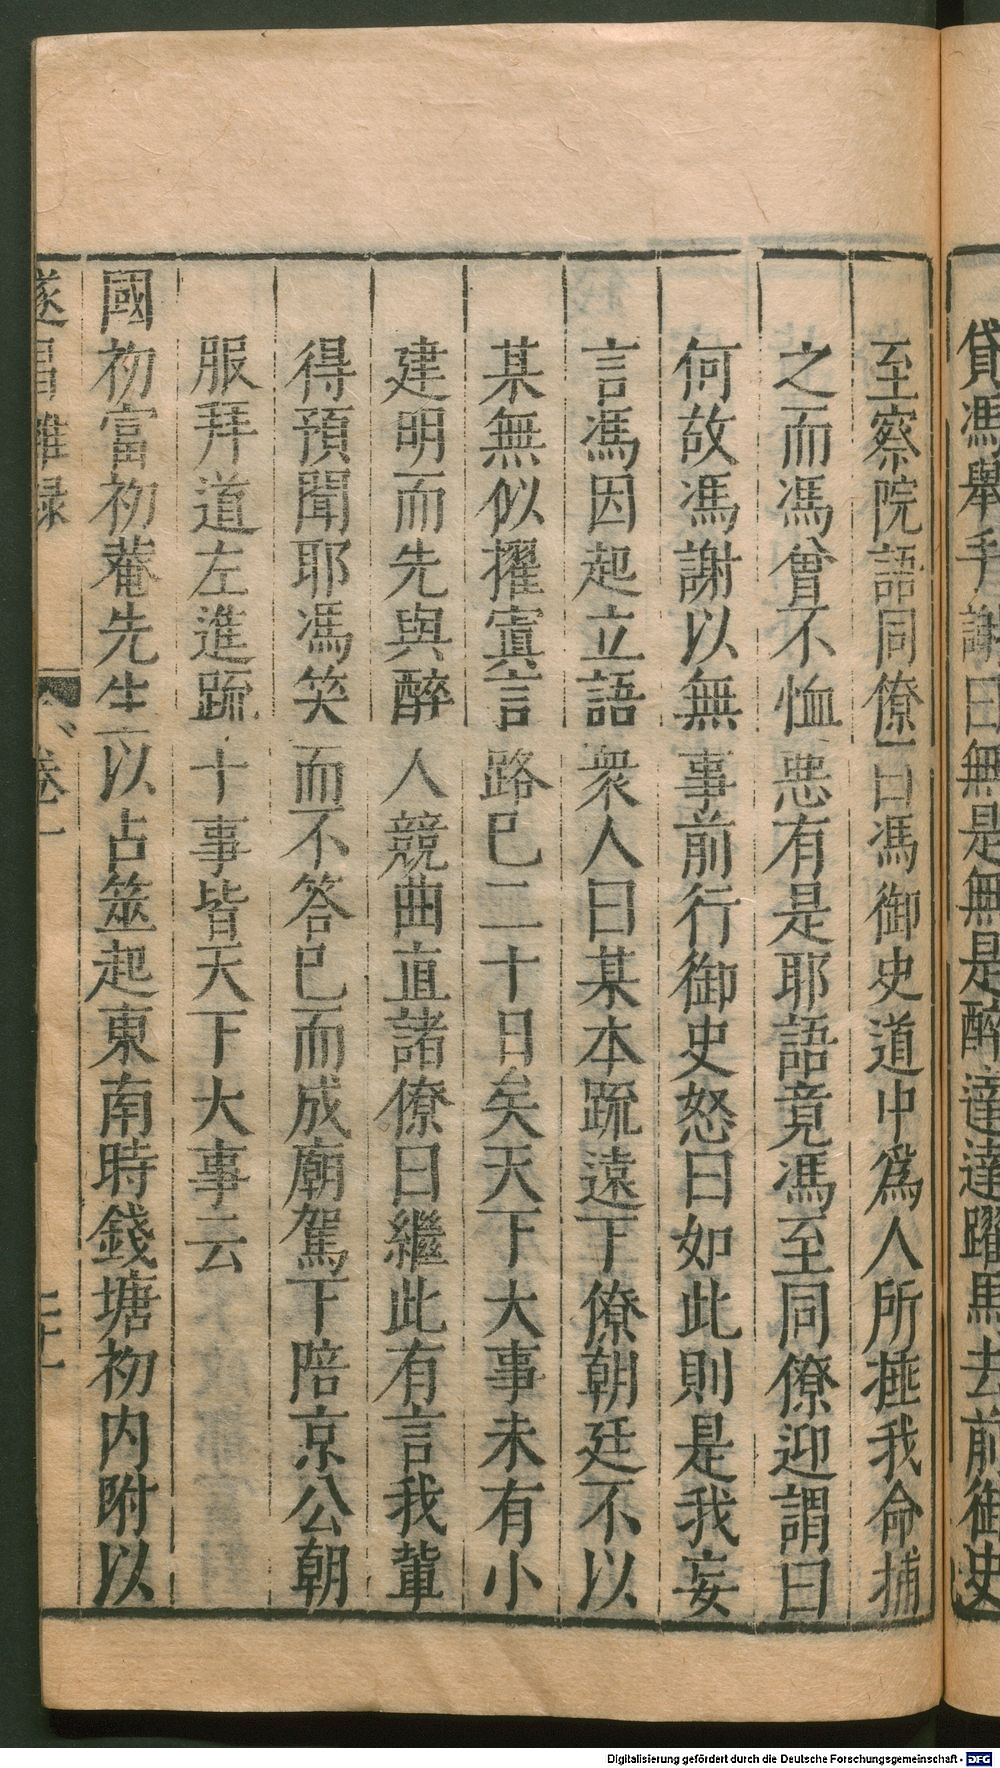 貸馮舉手謝曰無是無是醉達達躍馬去前御史
至察院語同僚曰馮御史道中爲人所捶我命捕
之而馮曾不恤惡有是耶語竟馮至同僚迎謂曰
何故馮謝以無事前行御史怒曰如此則是我妄
言馮因起立語衆人曰某本疏遠下僚朝廷不以
某無似擢寘言路已二十日矣天下大事未有小
建明而先與醉人競曲直諸僚曰繼此有言我輩
得預聞耶馮笑而不答已而成廟駕下陪京公朝
服拜道左進疏十事皆天下大事云
國初富初菴先生以占筮起東南時錢塘初内附以
遂昌雜録 卷一
Digitalisierung gefördert durch die Deutsche Forschungsgemeinschaft - DFG